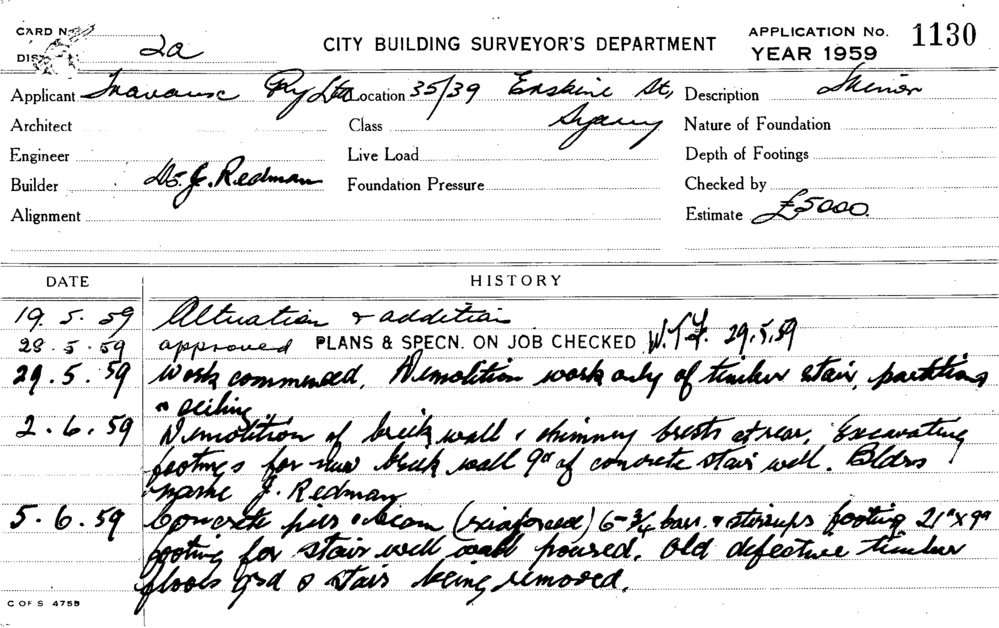 CARD No.
DIST 2a
CITY BUILDING SURVEYOR'S DEPARTMENT
APPLICATION No. 1130
YEAR 1959
Applicant Pty Ltd Location 35/39 Erskine St, Description
Architect Class Sydney Nature of Foundation
Engineer Live Load Depth of Footings
Builder J. Redman Foundation Pressure Checked by
Alignment Estimate £5000.
DATE HISTORY
19.5.59 Alteration & addition
28.5.59 approved PLANS & SPECN. ON JOB CHECKED 29.5.59
29.5.59 Work commenced. Demolition work only of timber stair, partitions
& ceiling
2.6.59 Demolition of brick wall & chimney breasts at rear. Excavating
footings for new brick wall 9" of concrete stair well. Bldrs
name J. Redman
5.6.59 Concrete piers & beam (reinforced) 6-3/4 bars & stirrups footing 21" x 9"
footing for stair well wall poured. Old defective timber
floors grd & stair being removed.
C OF S 4755